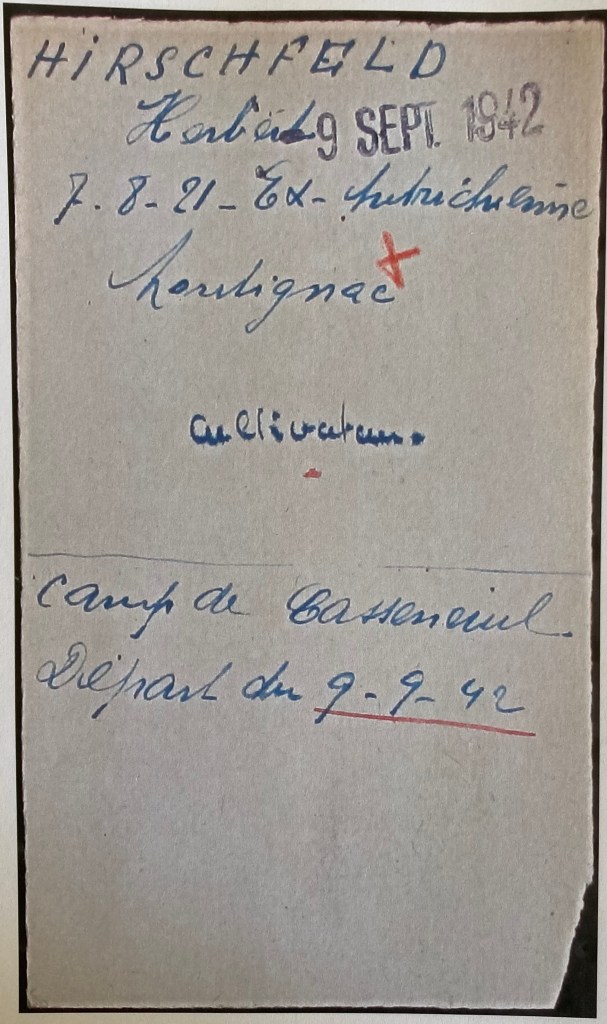 HIRSCHFELD
Herbert 9 SEPT. 1942
7-8-21-Ex-Autrichienne
Montignac
cultivateur.
Camp de Casseneuil.
Départ du 9-9-42